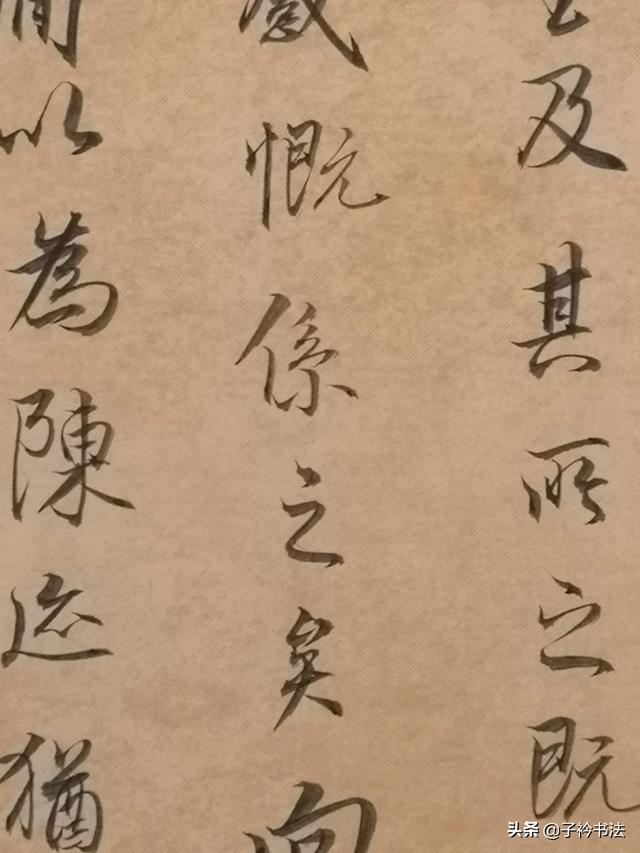 至及其所之既
感慨係之矣向
間以為陳迹猶
头条 @子衿书法